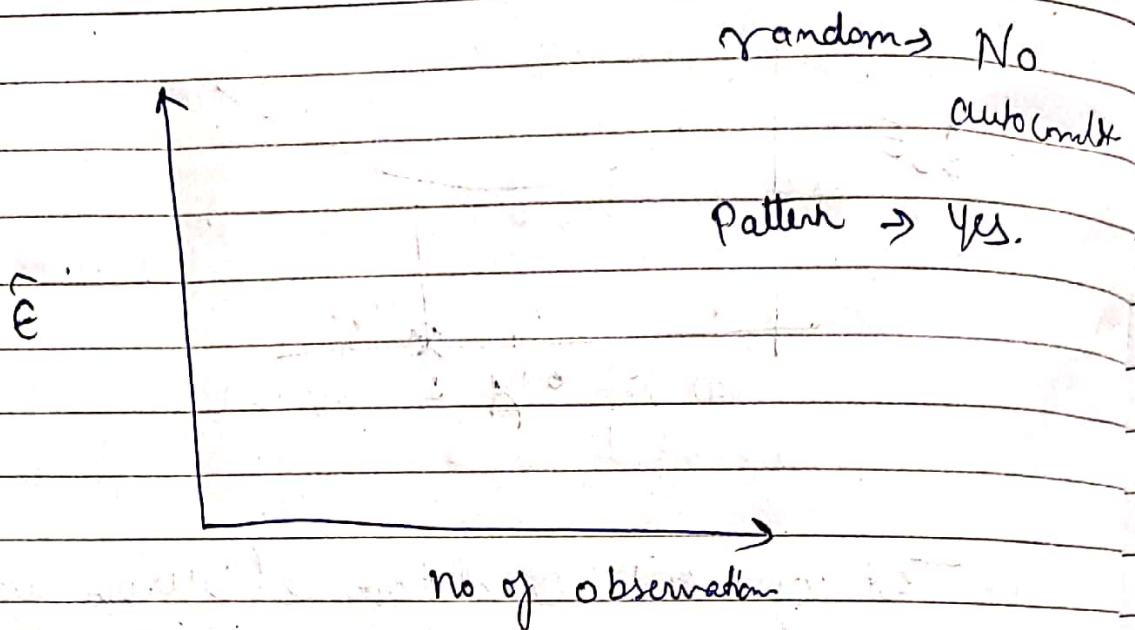 random → No
autocorrln
Pattern → Yes.
ε̂
No of observation